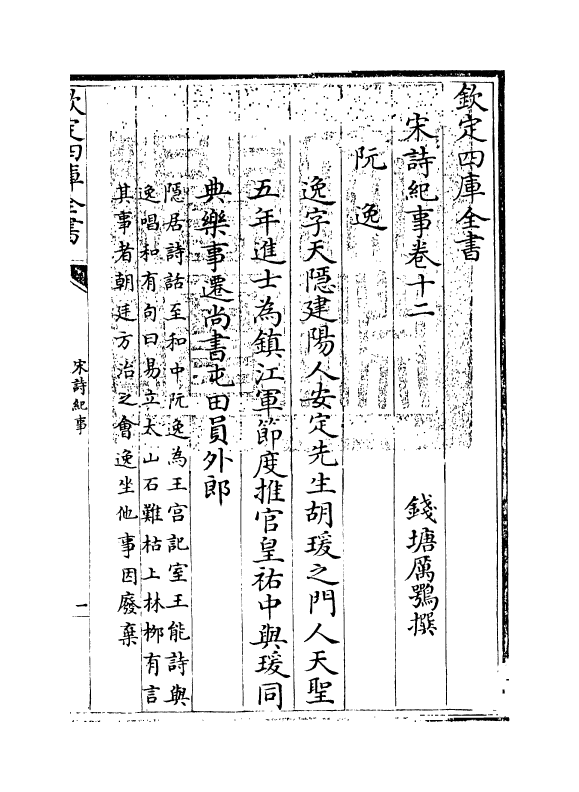 欽定四庫全書
宋詩紀事卷十二
錢塘厲鶚撰
阮逸
逸字天隱建陽人安定先生胡瑗之門人天聖
五年進士為鎮江軍節度推官皇祐中與瑗同
典樂事遷尚書屯田員外郎
隱居詩話至和中阮逸為王宫記室王能詩與
逸唱和有句曰易立太山石難枯上林栁有言
其事者朝廷方治之會逸坐他事因廢棄
欽定四庫全書
宋詩紀事
一